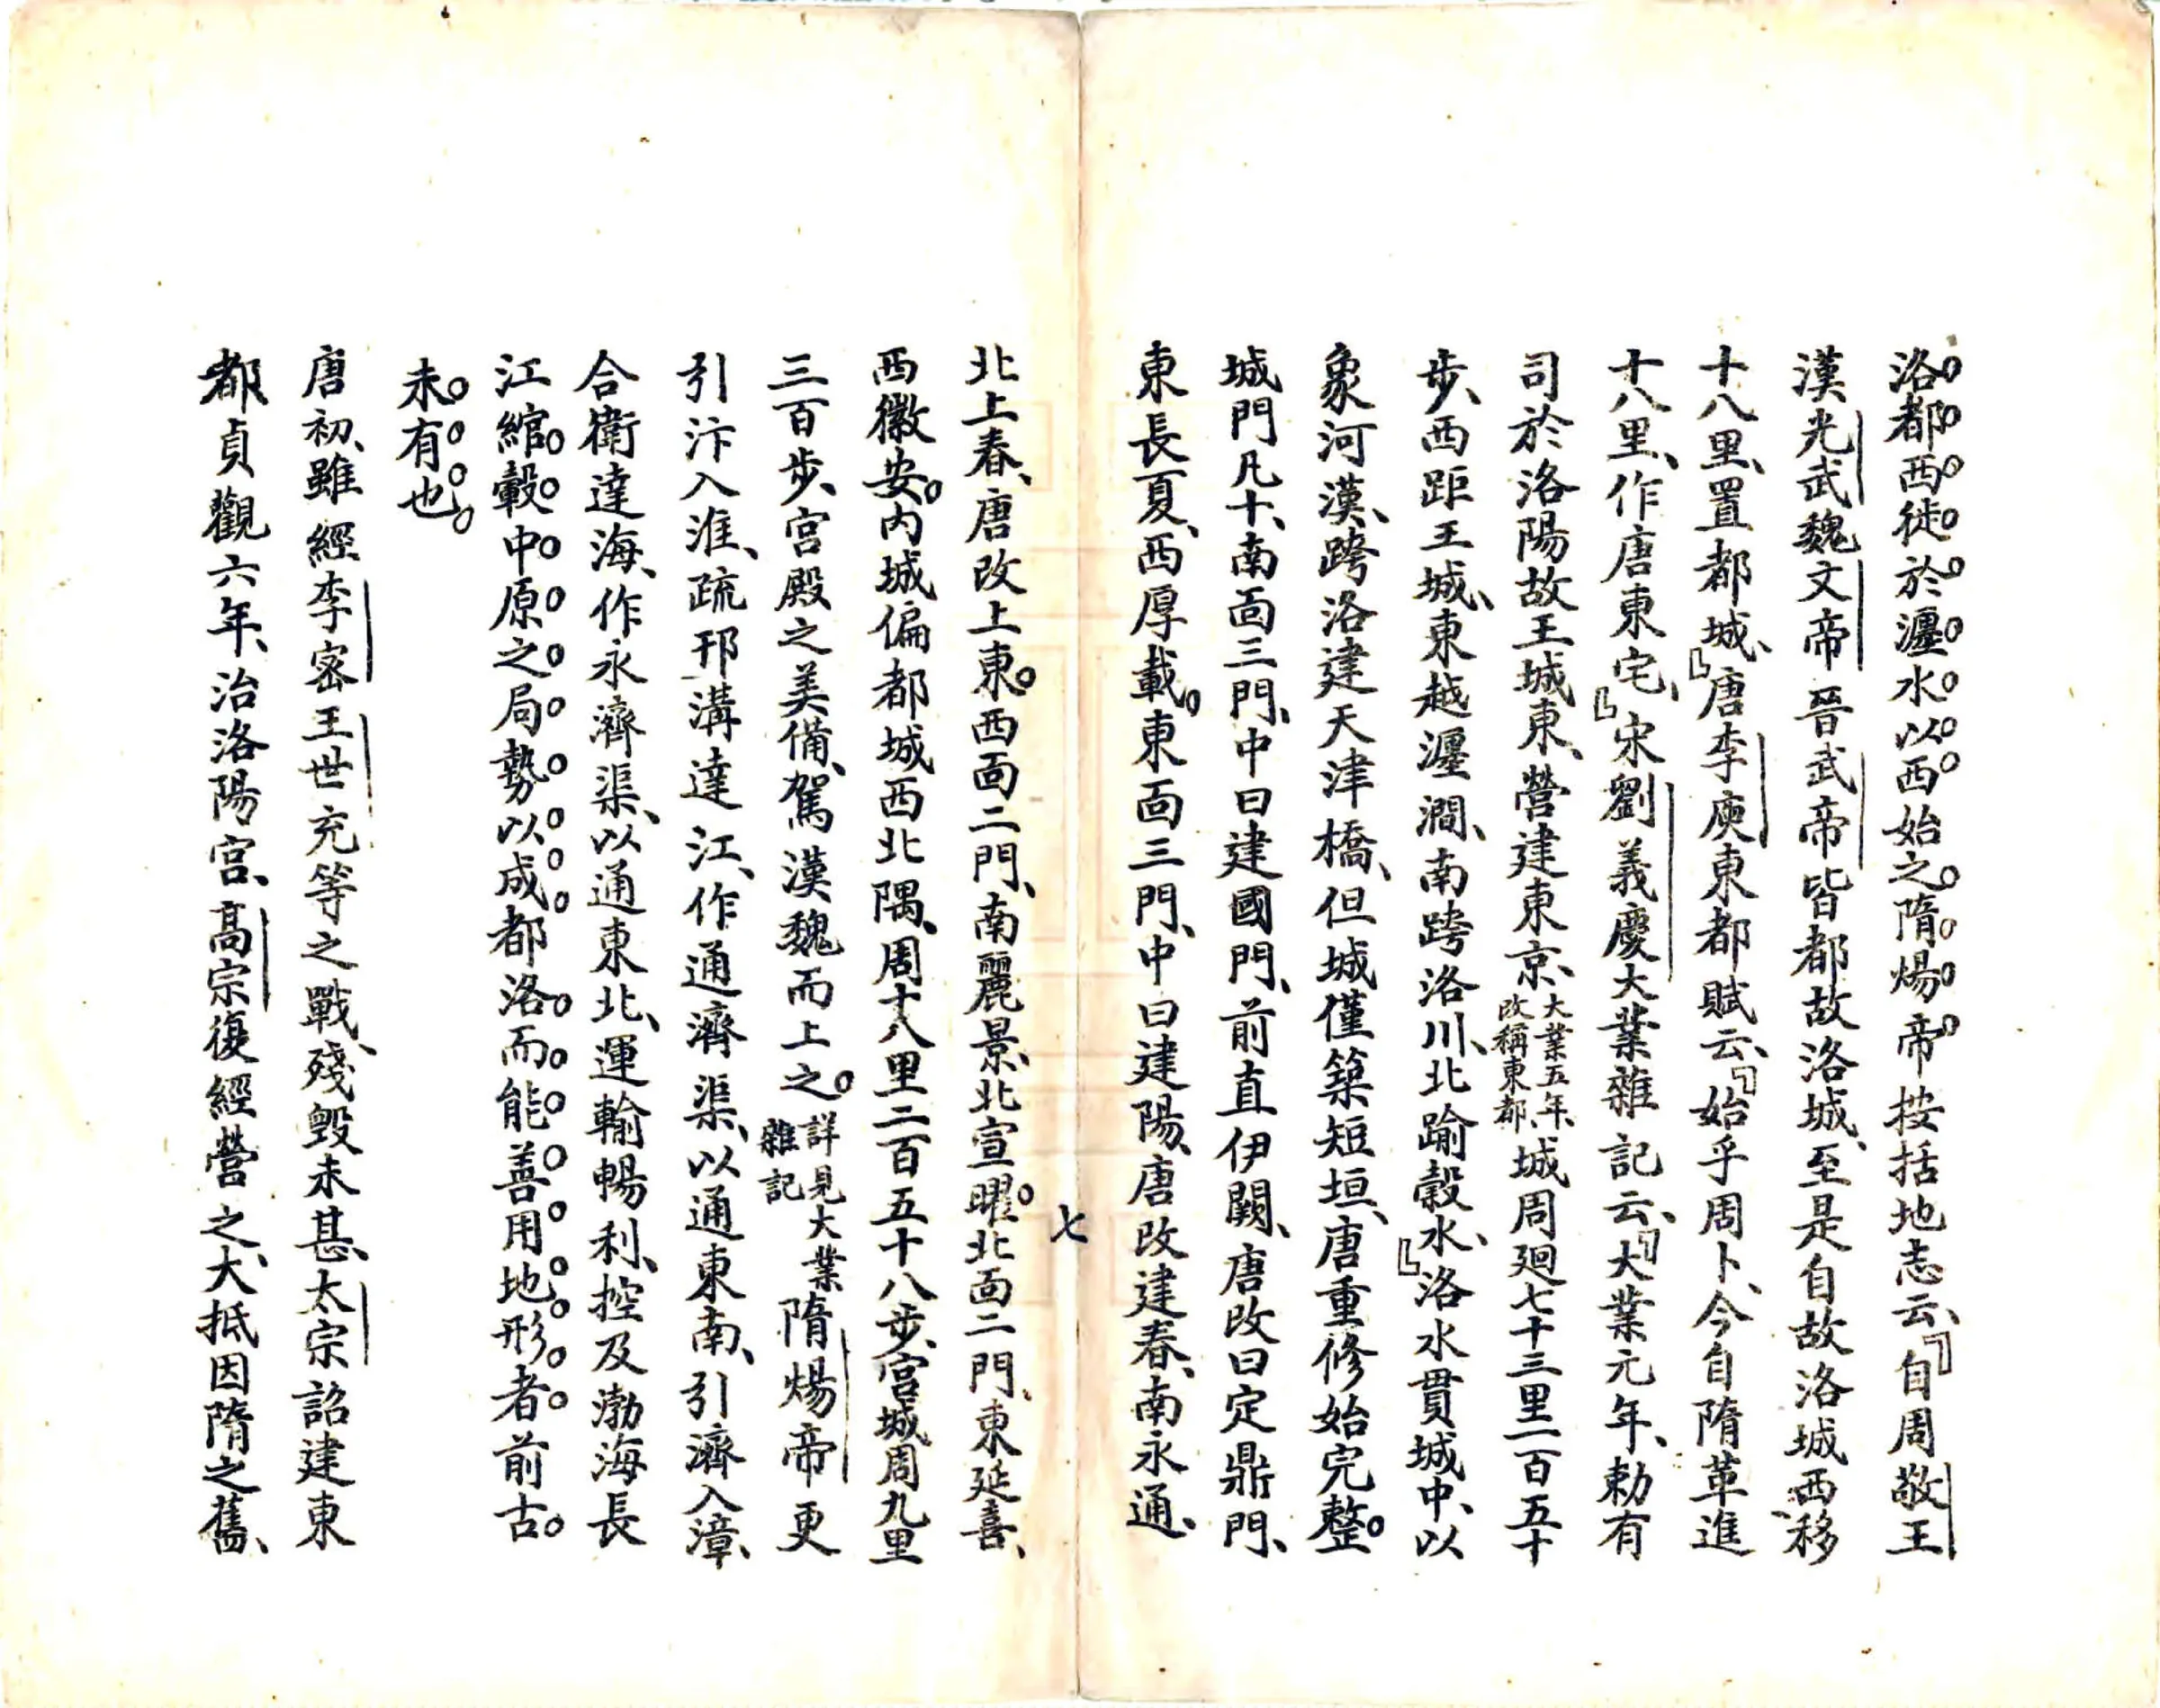 洛都西徙於瀍水以西始之隋煬帝按括地志云、『自周敬王
漢光武魏文帝晉武帝皆都故洛城、至是自故洛城西移
十八里、置都城、』唐李庾東都賦云、『始乎周卜、今自隋革進
十八里、作唐東宅、』宋劉義慶大業雜記云、『大業元年、勅有
司於洛陽故王城東、營建東京、大業五年、改稱東都、城周廻七十三里一百五十
步、西距王城、東越瀍澗、南跨洛川、北踰榖水、』洛水貫城中、以
象河漢、跨洛建天津橋、但城僅築短垣、唐重修始完整。
城門凡十、南面三門、中曰建國門、前直伊闕、唐改曰定鼎門、
東長夏、西厚載。東面三門、中曰建陽、唐改建春、南永通、
七
北上春、唐改上東。西面二門、南麗景、北宣曜。北面二門、東延喜、
西徽安。內城偏都城西北隅、周十八里二百五十八步、宮城周九里
三百步、宮殿之美備、駕漢魏而上之。詳見大業雜記隋煬帝更
引汴入淮、疏邗溝達江、作通濟渠、以通東南、引濟入漳、
合衛達海、作永濟渠、以通東北、運輸暢利、控及渤海長
江綰轂中原之局勢以成都洛而能善用地形者前古
未有也。
唐初、雖經李密王世充等之戰、殘毀未甚、太宗詔建東
都貞觀六年、治洛陽宮、高宗復經營之、大抵因隋之舊、